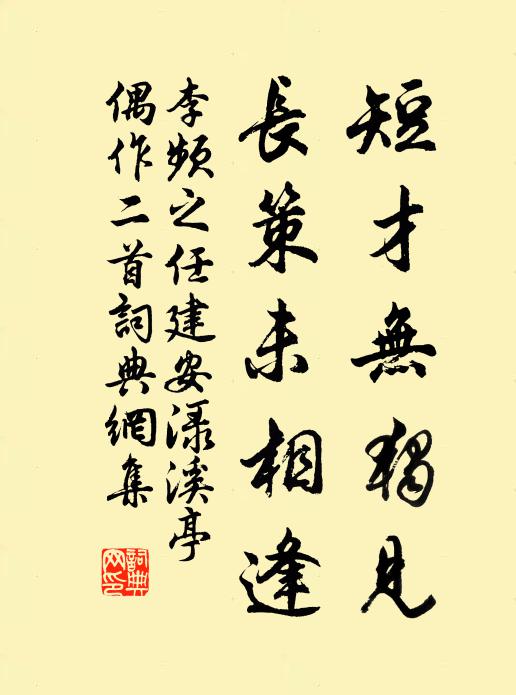 短才無獨見
長策未相逢
李頻之任建安渌溪亭
偶作二首詞典網集
詞典網印